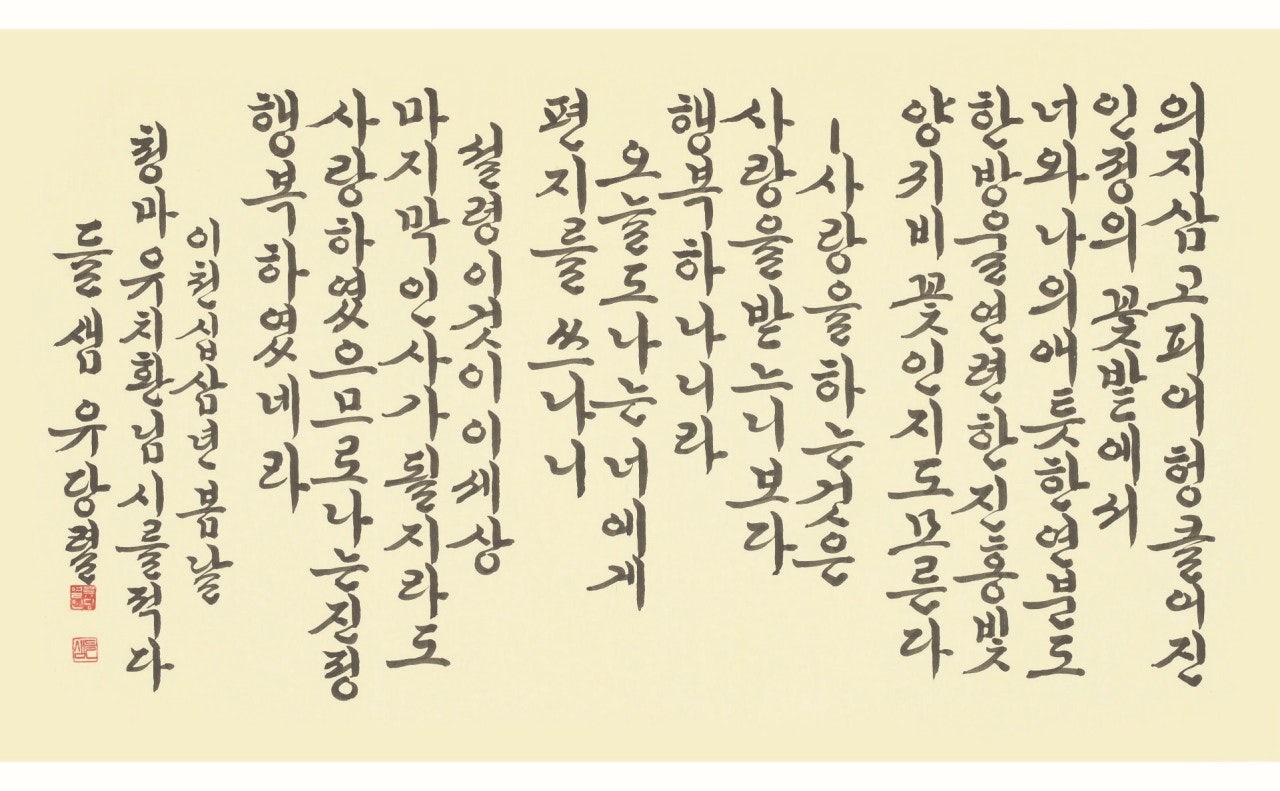 의지삼고피어헝클어진
인정의 꽃밭에서
너와 나의애틋한연분도
한방울연련한진홍빛
양귀비 꽃인지도모른다
ㅡ사랑을하는것은
사랑을받느니보다
행복하나니라
오늘도나는너에게
편지를 쓰나니
설령이것이이세상
마지막인사가될지라도
사랑하였으므로나는진정
행복하였네라
이천십삼년봄날
청마유치환님시를적다
들샘 유당렬
들샘